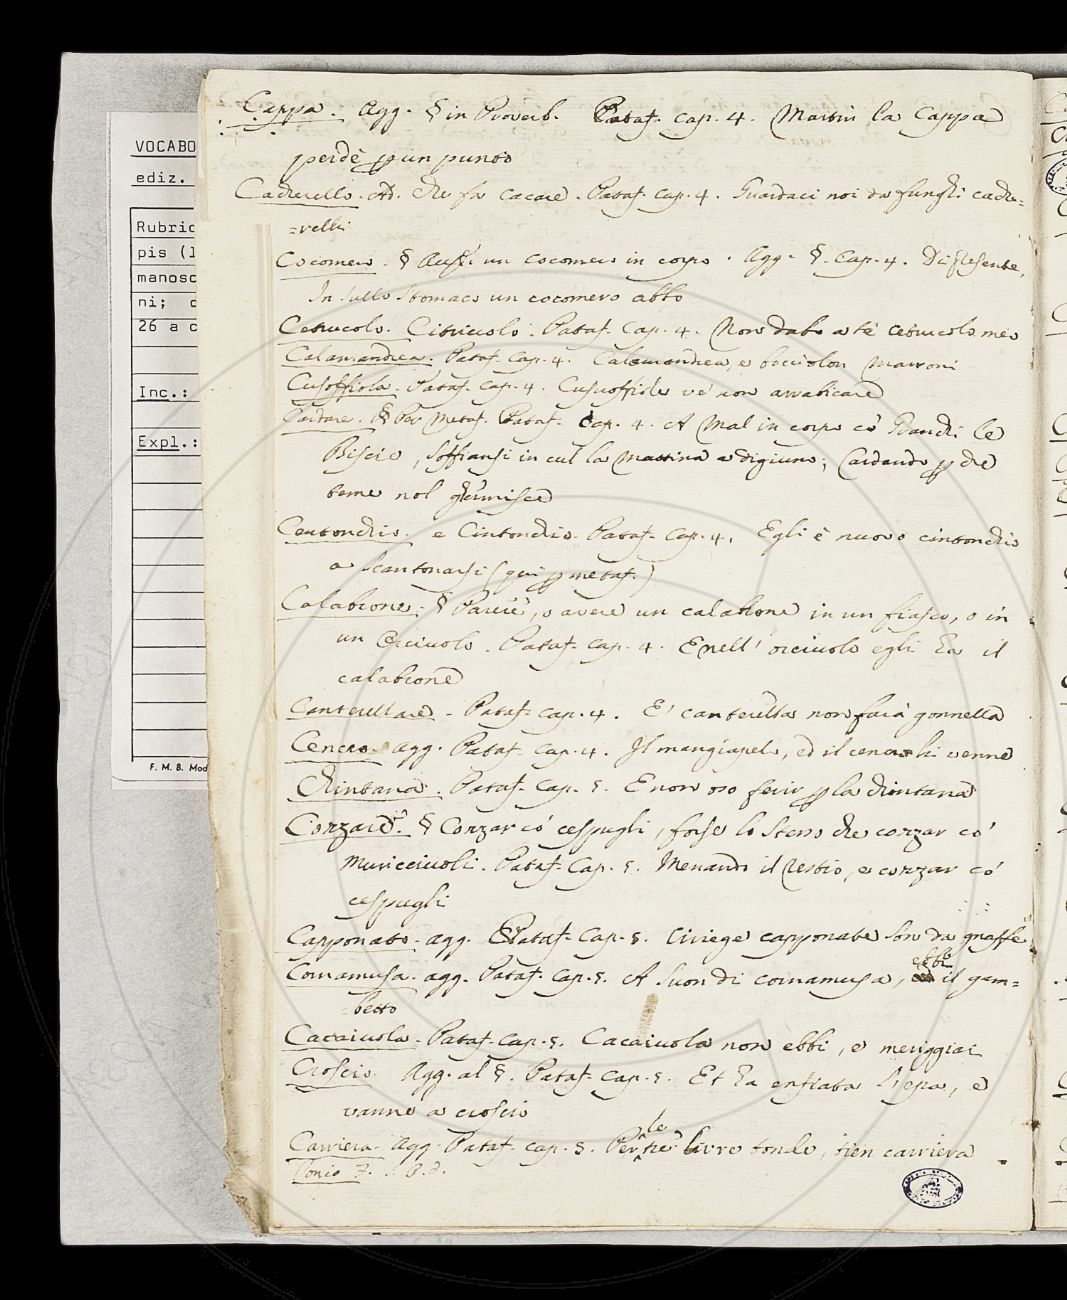 VOCABO
ediz.
Rubric
pis (1
manosc
ni; c
26 a c
Inc.:
Expl.:
F. M. B. Mod
Cappa. Agg. § in Proverb. Pataf. cap. 4. Martin la Cappa
perdè p un punto
Cacherello. Ad. che fa cacare. Pataf. cap. 4. Guardaci noi da funghi cache=
=relli
Cocomero. § un cocomero in corpo. Agg. §. Cap. 4.
In sullo stomaco un cocomero abbo
Cetruolo. Citriuolo. Pataf. Cap. 4. Non dabo a te cetruolo meo
Calamandrea. Pataf. Cap. 4. Calamandrea, e Marroni
Cusoffiola. Pataf. cap. 4. ve' non arrabicare
Cardare. § Per Metaf. Pataf. Cap. 4. A Mal in corpo co' Grandi le
Biscie, soffiansi in cul la mattina a digiuno; Cardando p che
teme nol ghermisce
Centonchio. e Cintonchio. Pataf. Cap. 4. Egli è nuovo cintonchio
a scantonarsi (qui p metaf.)
Calabrone. § Parere, o avere un calabrone in un fiasco, o in
un Orciuolo. Pataf. Cap. 4. E nell' orciuolo egli ha il
calabrone
Canterellare. Pataf. cap. 4. E' canterella non farà gonnella
Cencro. agg. Pataf. Cap. 4. Il mangiapelo, ed il cencro li venne
Chintana. Pataf. Cap. 5. E non oso ferir p la chintana
Cozzare. § Cozzar co' cespugli, forse lo stesso che cozzar co'
Muricciuoli. Pataf. Cap. 5. Menando il restio, e cozzar co'
cespugli
Capponato. agg. Pataf. Cap. 5. Ciriege capponate son da gnaffe
Cornamusa. agg. Pataf. Cap. 5. A suon di cornamusa, ebbi il gam=
=betto
Cacaiuola. Pataf. Cap. 5. Cacaiuola non ebbi, e meriggiai
Croscio. Agg. al §. Pataf. Cap. 5. Et ha enfiata l'epa, e
vanne a croscio
Carriera. Agg. Pataf. cap. 5. Per le tre lirre tonde, tien carriera